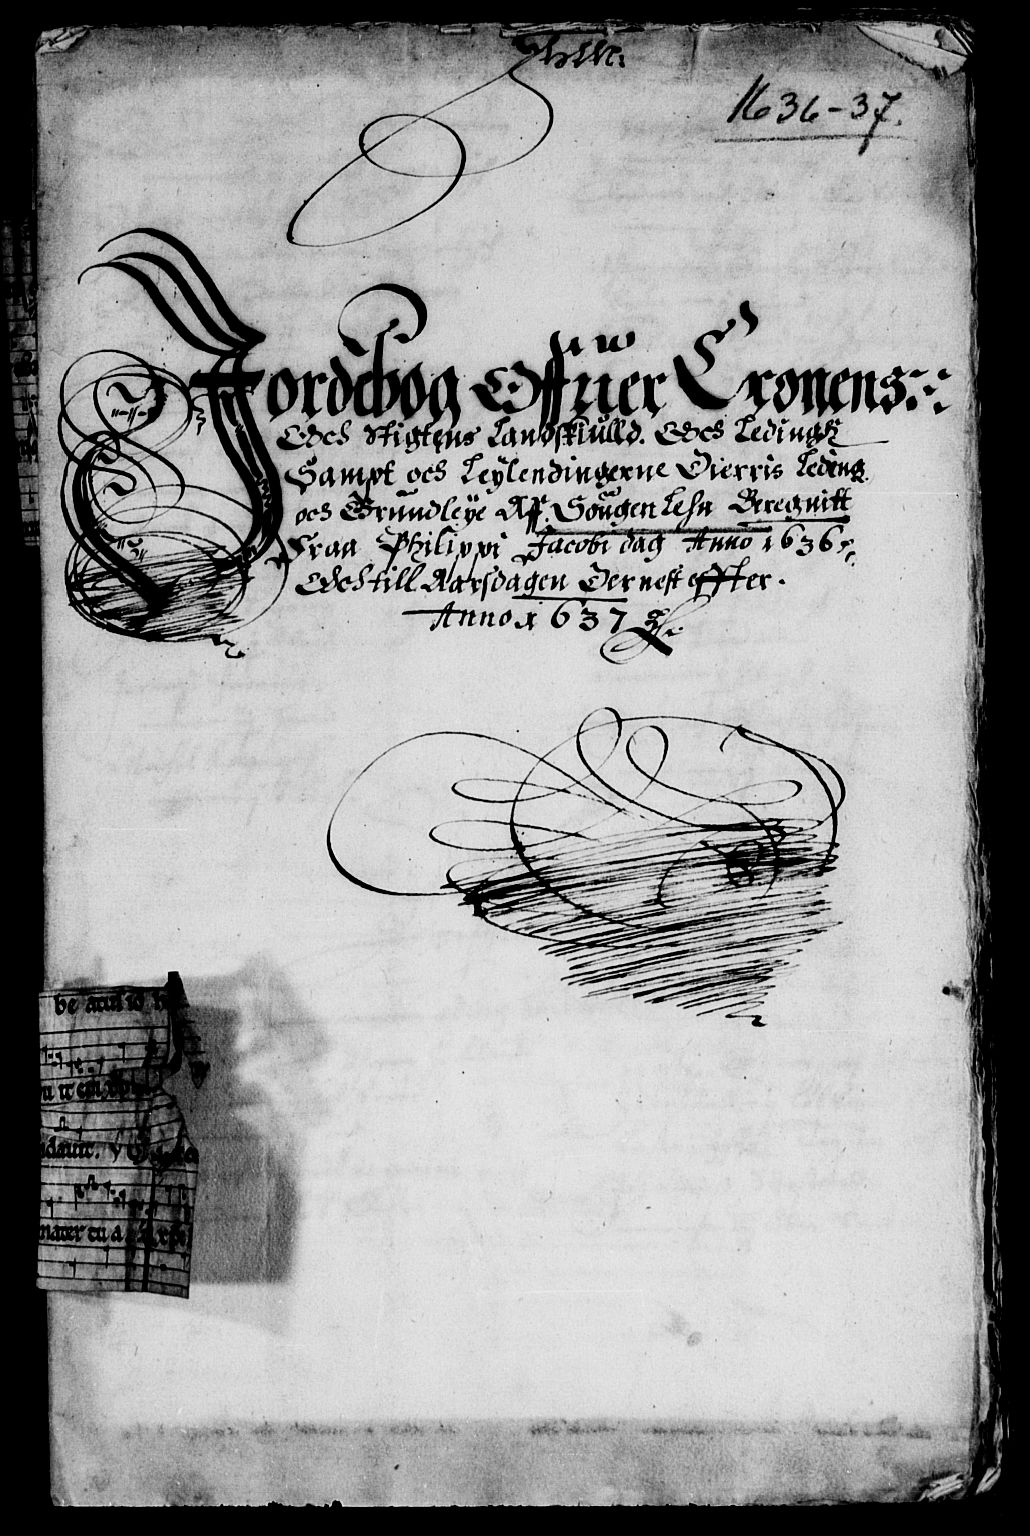 1636-37.
Jordebog Offuer Cronens
Och Stigtens Landskiülld. Och Ledingß
Sampt och Leylendingerne Dierris Leding
och Gründleye Aff. Sougen Lehn Beregnitt
Fraa Philippi Jacobi dag Anno 1636
Och till Aarsdagen Dernest effter.
Anno 1637
be
mater tu a